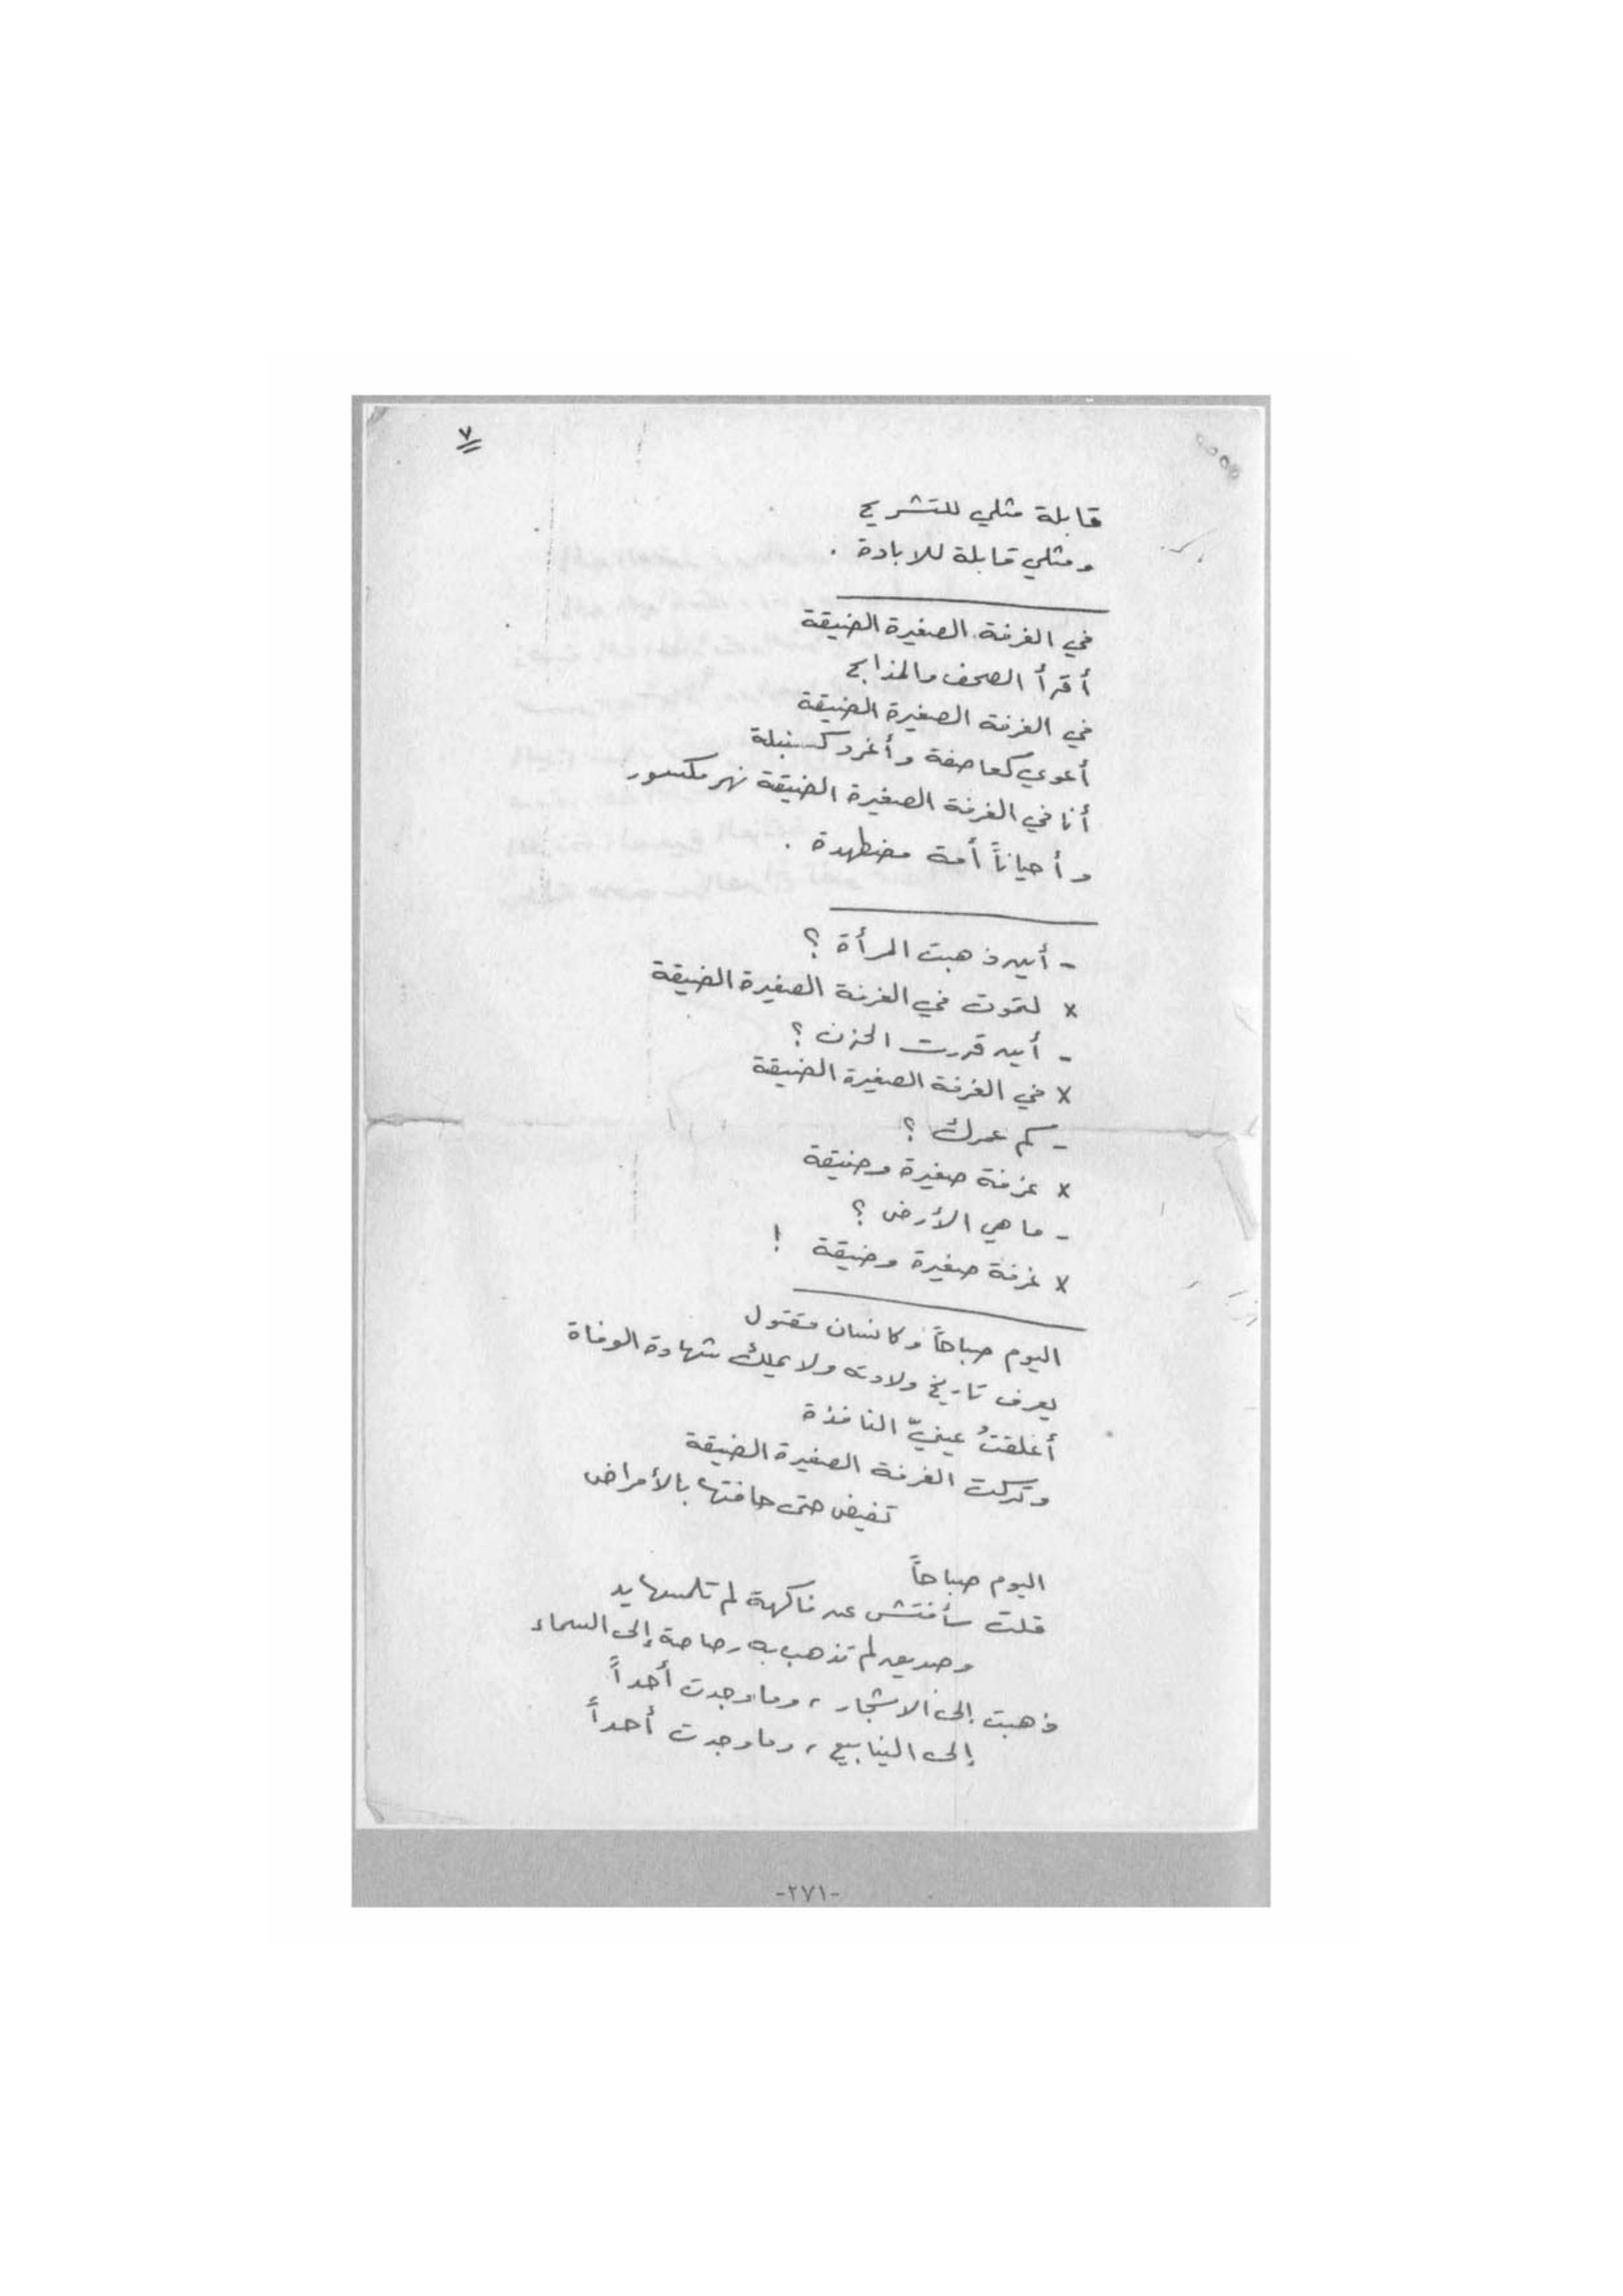 ٧
قابلة مثلي للتشريح
ومثلي قابلة للابادة .
في الغرفة الصغيرة الضيقة
أقرأ الصحف والمذابح
في الغرفة الصغيرة الضيقة
أعوي كعاصفة وأغرد كسنبلة
أنا في الغرفة الصغيرة الضيقة نهر مكسور
وأحياناً أمة مضطهدة .
- أين ذهبت المرأة ؟
x لتموت في الغرفة الصغيرة الضيقة
- أين قررت الحزن ؟
x في الغرفة الصغيرة الضيقة
- كم عمرك ؟
x غرفة صغيرة وضيقة
- ما هي الأرض ؟
x غرفة صغيرة وضيقة !
اليوم صباحاً وكانسان مقتول
يعرف تاريخ ولادته ولا يملك شهادة الوفاة
أغلقتُ عينيّ النافذة
وتركت الغرفة الصغيرة الضيقة
تفيض حتى حافتها بالأمراض
اليوم صباحاً
قلت سأفتش عن فاكهة لم تلمسها يد
وصديق لم تذهب به رصاصة إلى السماء
ذهبت إلى الاشجار ، وما وجدت أحداً
إلى الينابيع ، وما وجدت أحداً
-٢٧١-